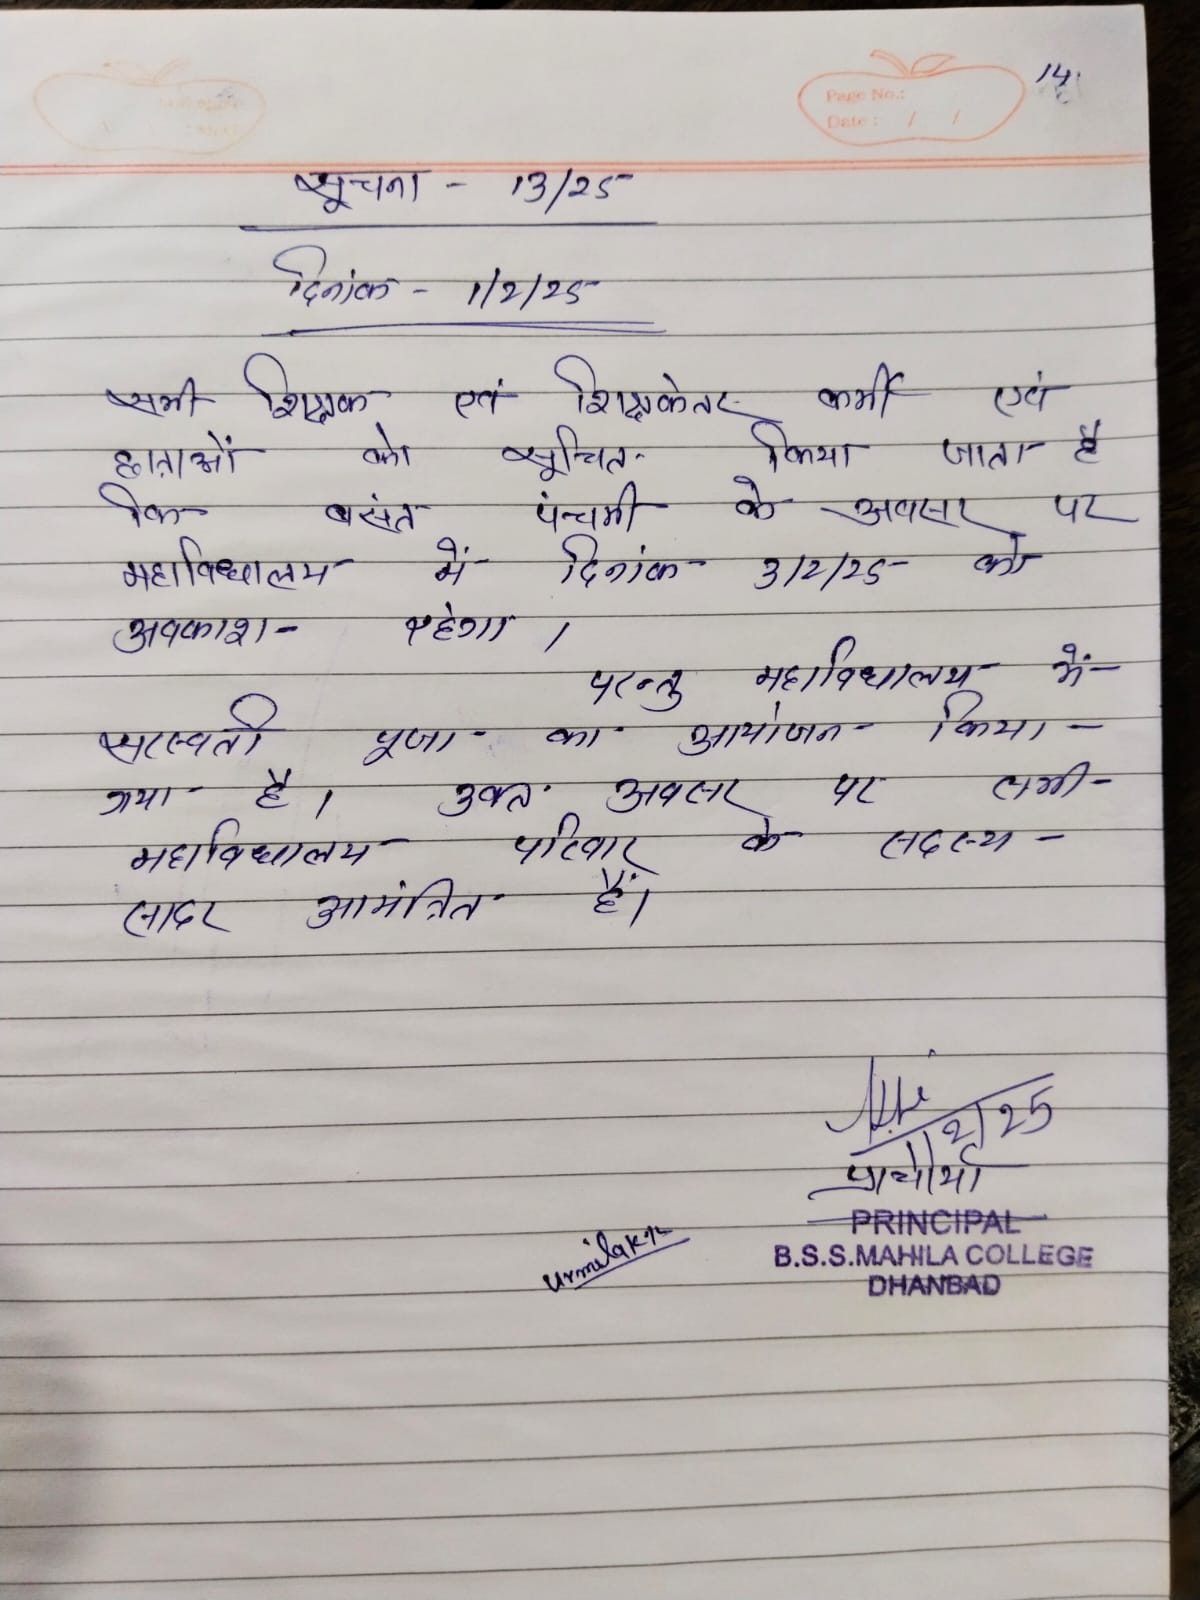 14
Page No.:
Date : / /
सूचना - 13/25
दिनांक - 1/2/25
सभी शिक्षक एवं शिक्षकेतर कर्मी एवं
छात्राओं को सूचित किया जाता है
कि बसंत पंचमी के अवसर पर
महाविध्यालय में दिनांक 3/2/25 को
अवकाश रहेगा।
परन्तु महाविध्यालय में
सरस्वती पूजा का आयोजन किया
गया है। उक्त अवसर पर सभी
महाविध्यालय परिवार के सदस्य
सादर आमंत्रित हैं।
1/2/25
प्राचार्या
PRINCIPAL
B.S.S.MAHILA COLLEGE
DHANBAD